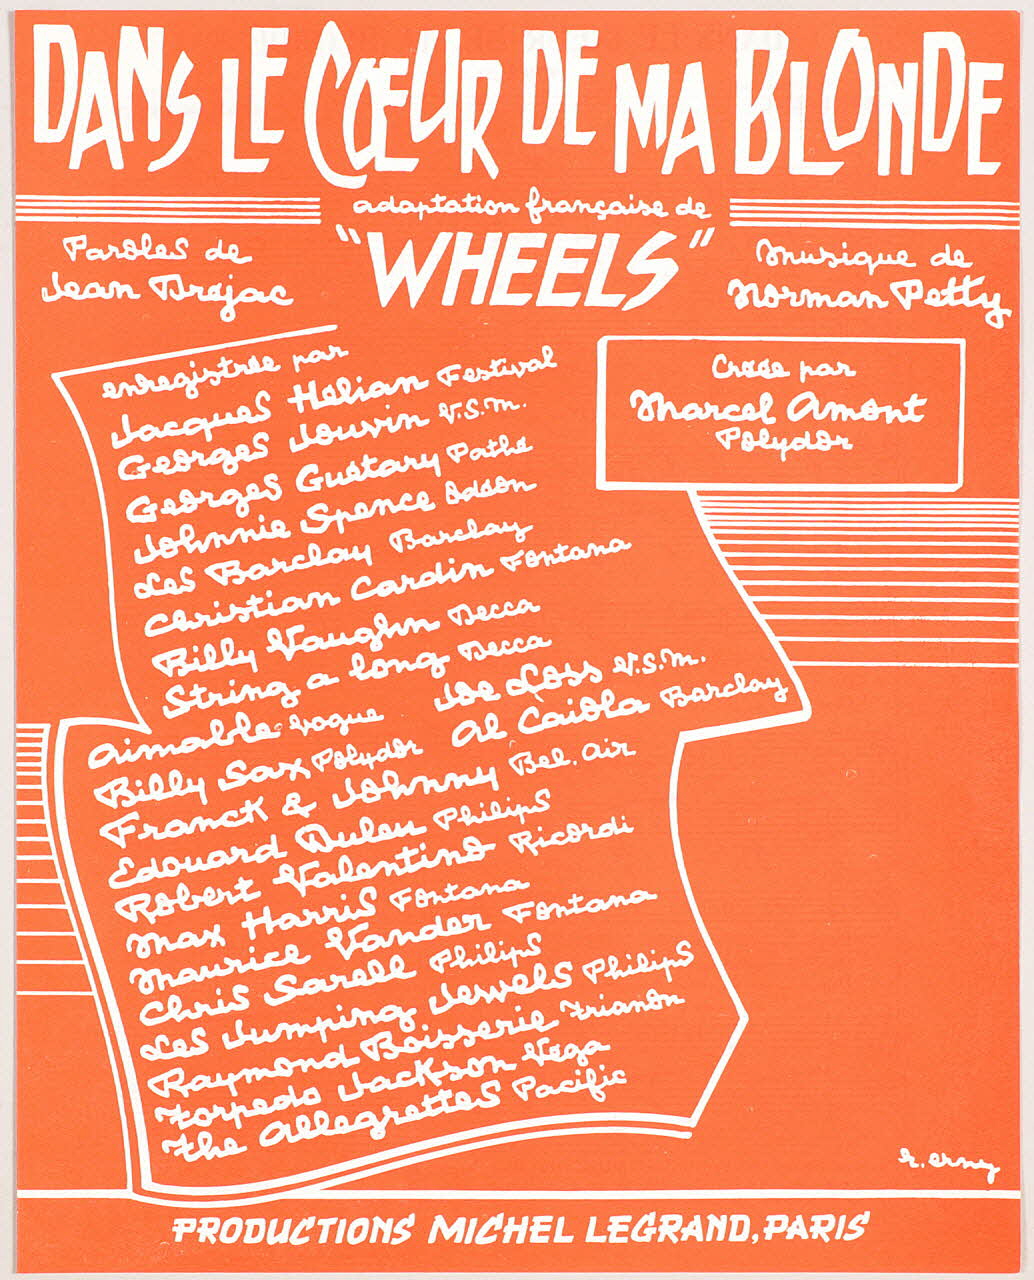 DANS LE CŒUR DE MA BLONDE
adaptation française de
"WHEELS"
Paroles de
Jean Brojac
Musique de
Norman Petty
enregistrée par
Jacques Hélian Festival
Georges Jouvin V.S.M.
Georges Guétary Pathé
Johnnie Spence Odéon
Les Barclay Barclay
Christian Cardin Fontana
Billy Vaughn Decca
String a long Decca
Aimable Vogue Joe Loss V.S.M.
Billy Sax Polydor Al Caiola Barclay
Franck & Johnny Bel. Air
Edouard Duleu Philips
Robert Valentino Ricordi
Max Harris Fontana
Maurice Vander Fontana
Chris Sarell Philips
Les Jumping Jewels Philips
Raymond Boisserie Trianon
Torpedo Jackson Véga
The Allegrettes Pacific
Créée par
Marcel Amont
Polydor
r. erny
PRODUCTIONS MICHEL LEGRAND, PARIS